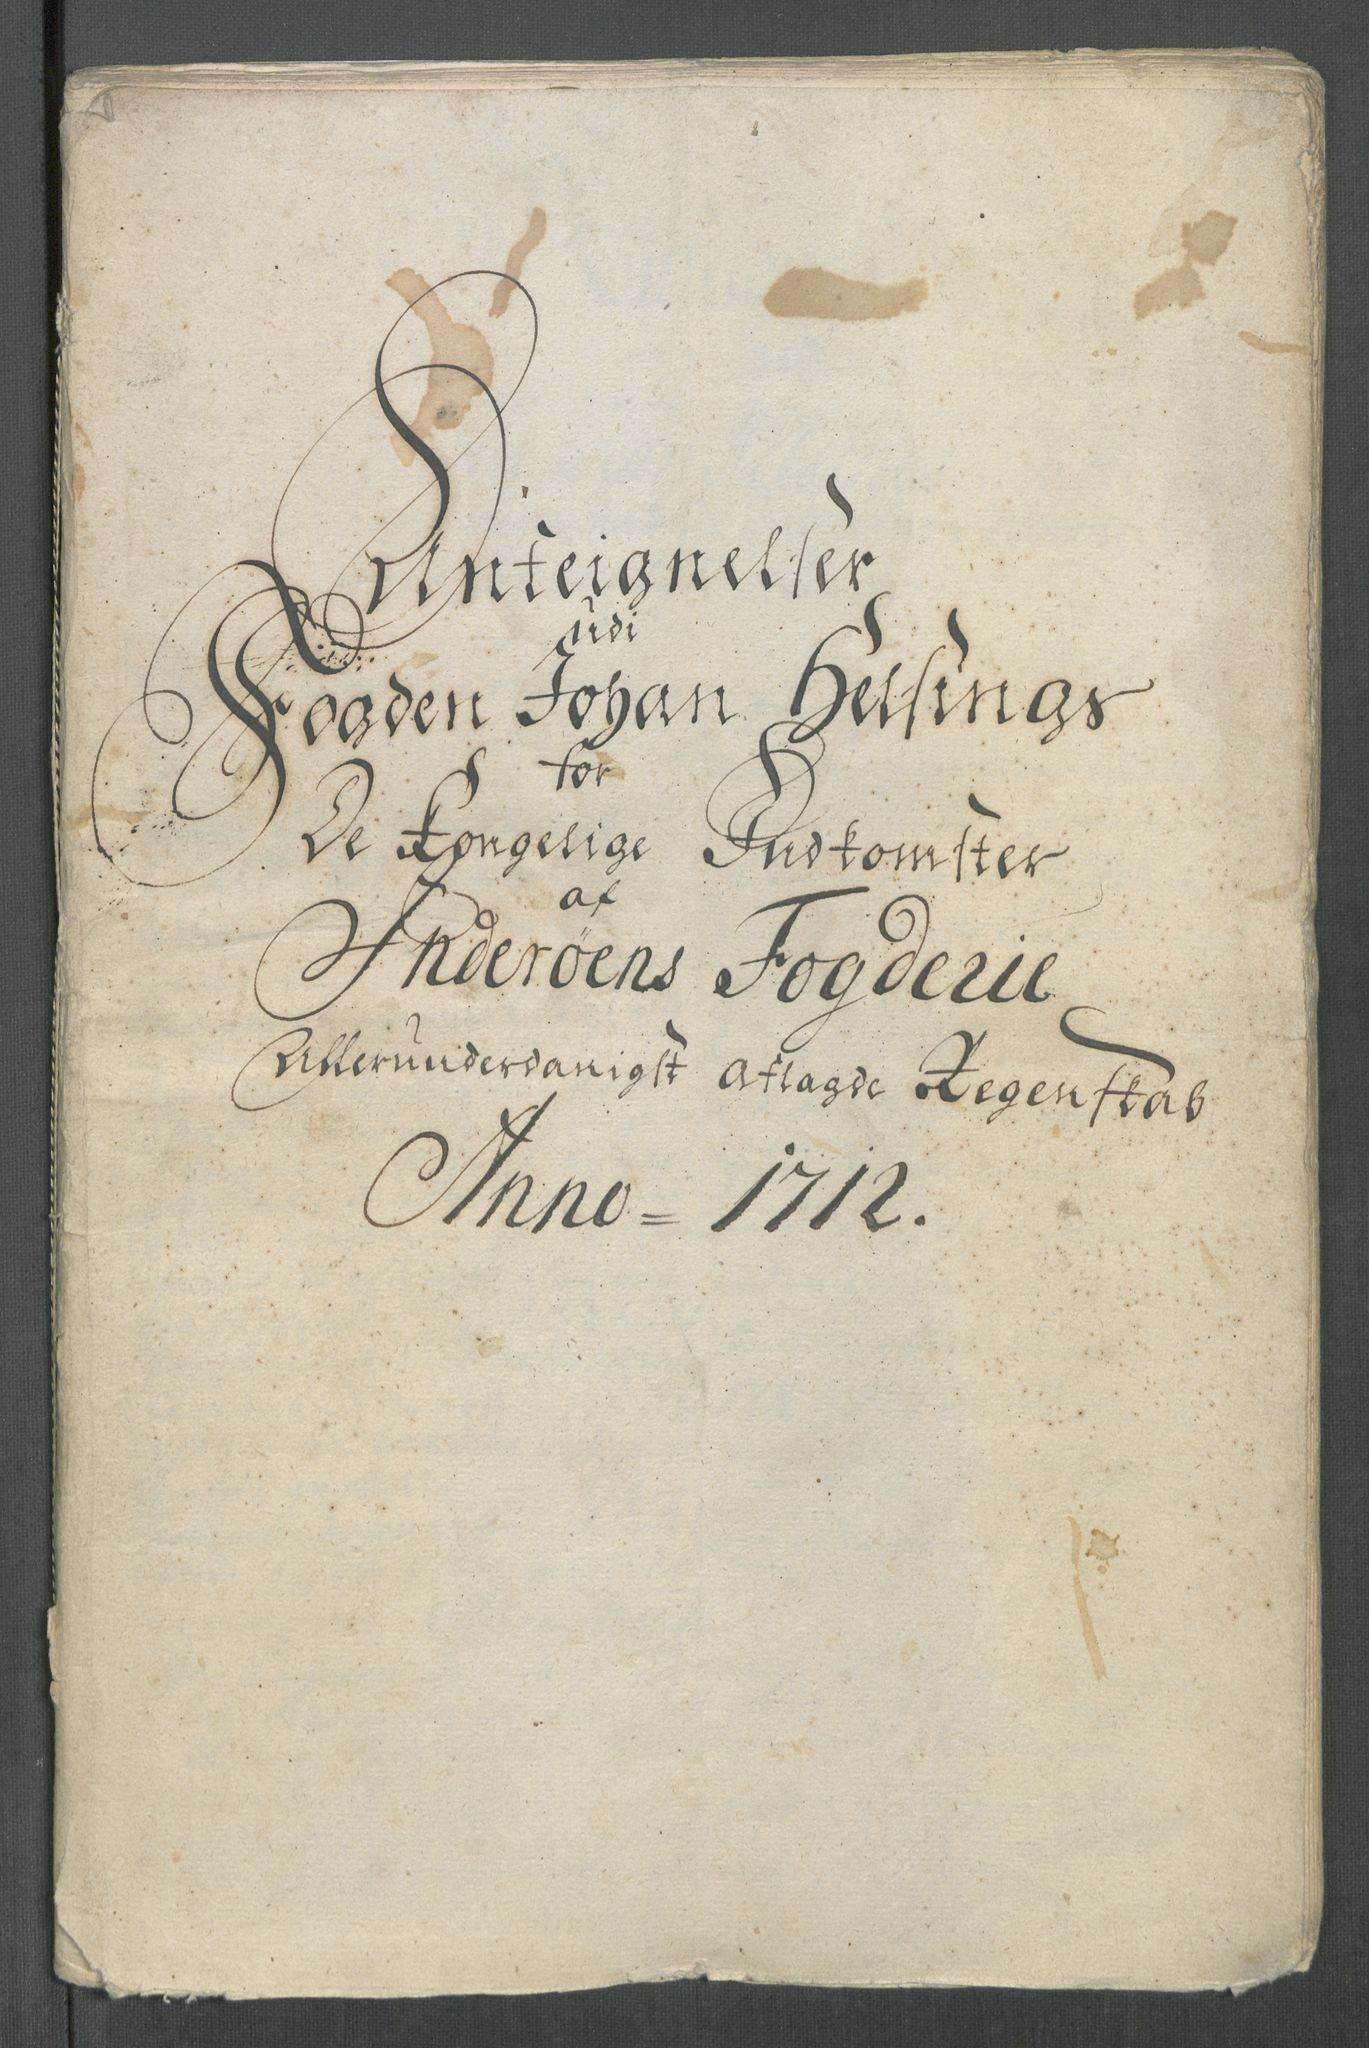 Anteignelser
udi
Fogden Johan Helsings
for
De Kongelige Indkomster
af
Inderöens Fogderie
Allerunderdanigst aflagde Regenskab
Anno = 1712.